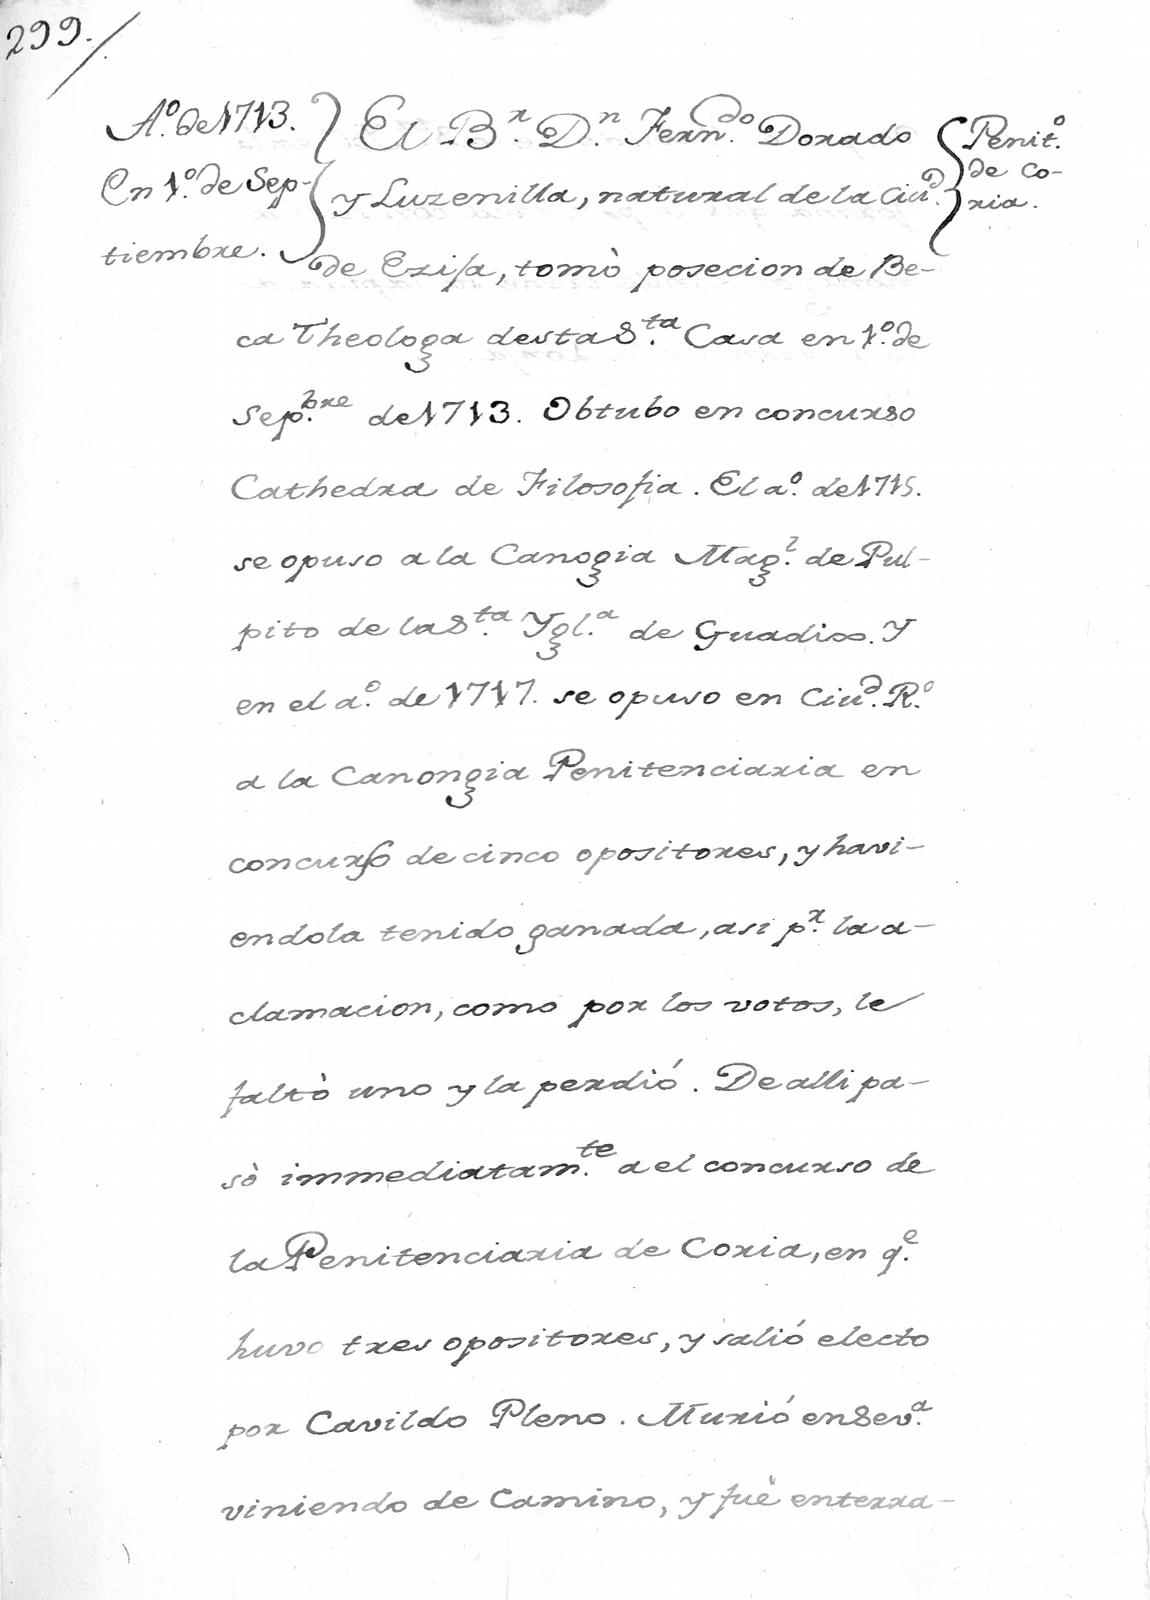 299.
Aº. de 1713.
En 1º. de Sep-
tiembre.
El Bʳ. Dⁿ. Fernᵈᵒ. Dorado
y Luzenilla, natural de la Ciuᵈ.
de Ezija, tomò posecion de Be-
ca Theologa desta Sᵗᵃ. Casa en 1º. de
Sepᵇʳᵉ. de 1713. Obtubo en concurso
Cathedra de Filosofia. El aº. de 1715.
se opuso a la Canogia Magˡ. de Pul-
pito de la Sᵗᵃ. Yglᵃ. de Guadix. Y
en el aº. de 1717. se opuso en Ciuᵈ. Rº.
a la Canongia Penitenciaria en
concurso de cinco opositores, y havi-
endola tenido ganada, asi pʳ. la a-
clamacion, como por los votos, le
faltò uno y la perdió. De alli pa-
sò immediatamᵗᵉ. a el concurso de
la Penitenciaria de Coria, en qᵉ.
huvo tres opositores, y salió electo
por Cavildo Pleno. Murió en Sevᵃ.
viniendo de Camino, y fuè enterra-
Penitº.
de Co-
ria.